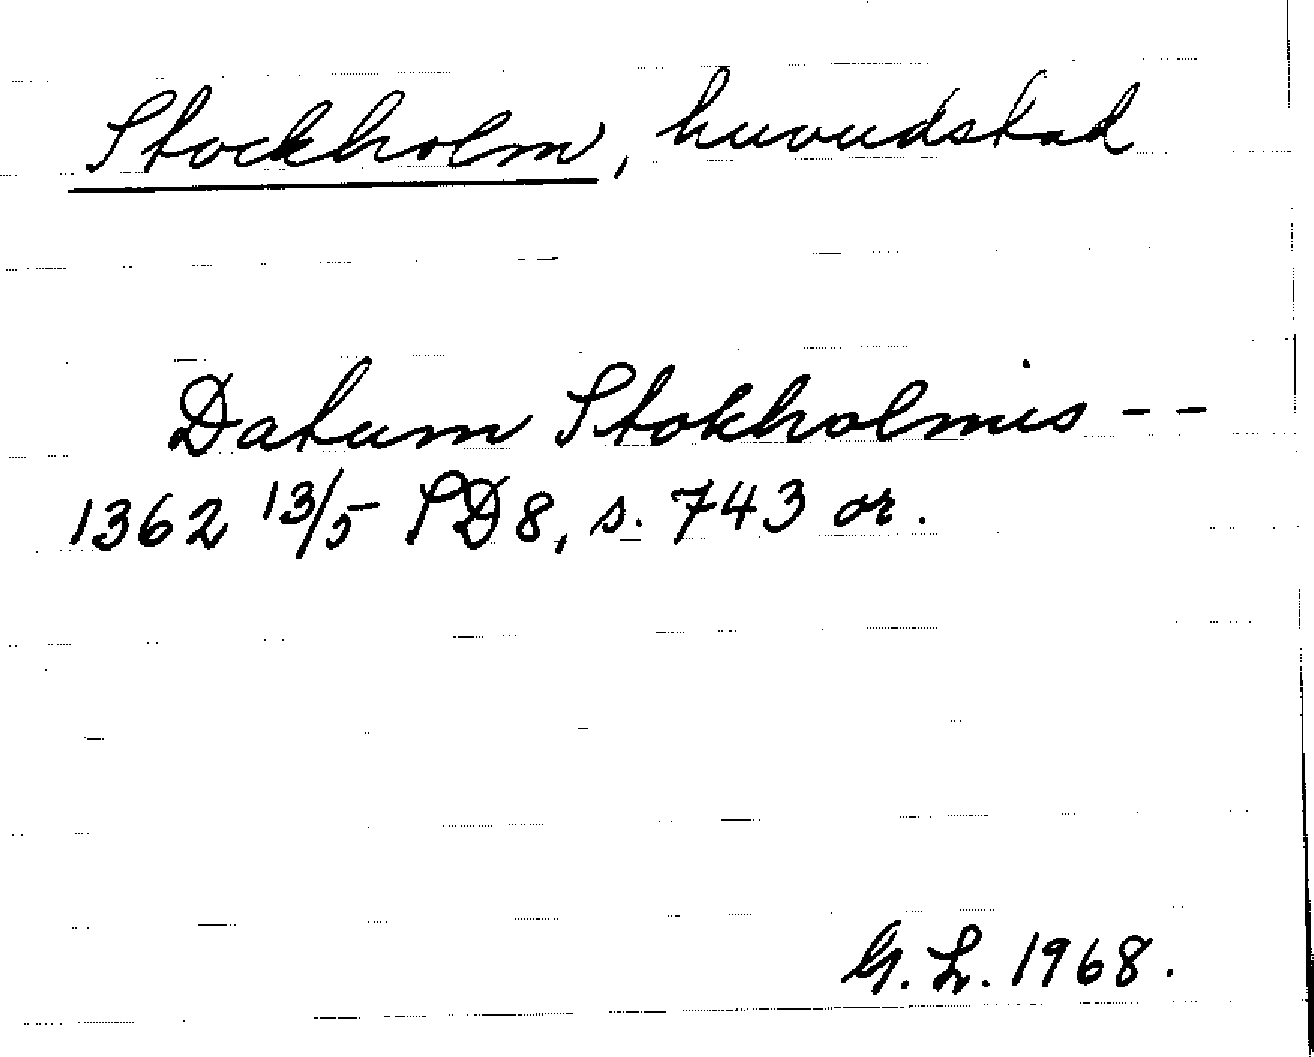 Stockholm, huvudstad
Datum Stokholmis --
1362 13/5 SD 8, s. 743 or.
G. L. 1968.